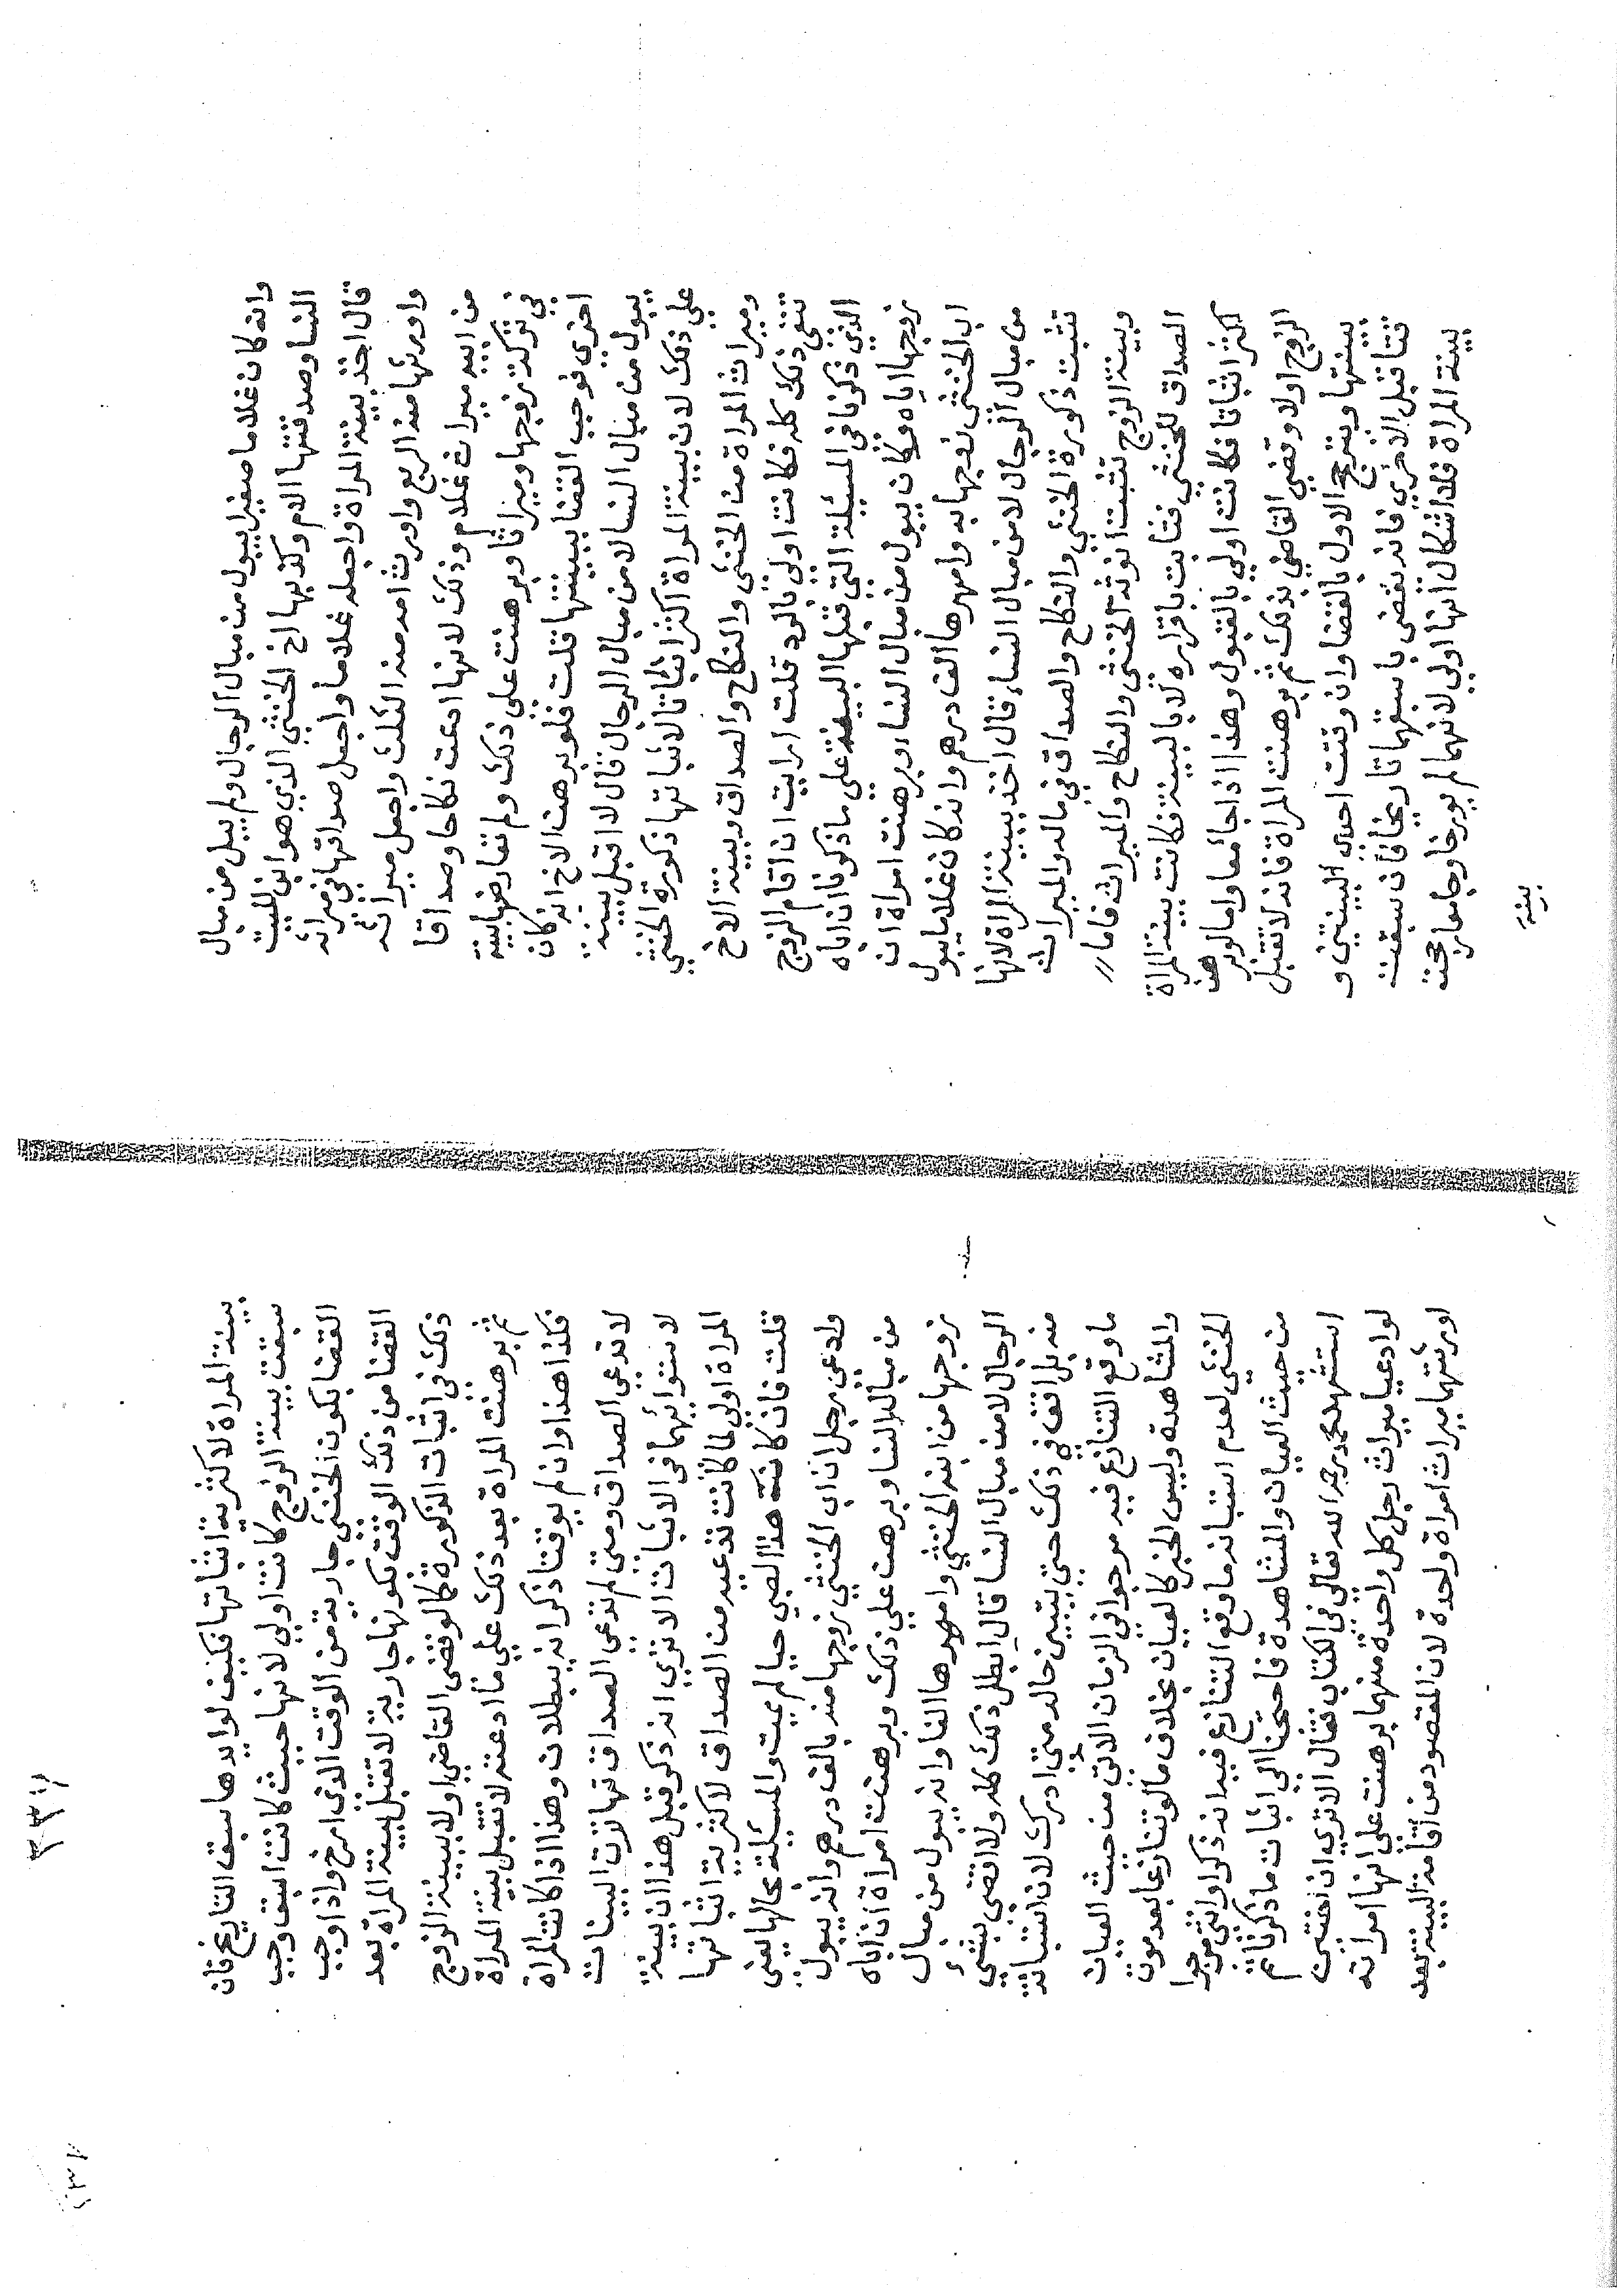 وانه كان غلاما صغيرا يبول من مبال الرجال ولم يبل من مبال
النسا وصدقتها الام وكذبها اخ الخنثي الذي هو ابن الميت
قال اخذ ببينة المراة واجعله غلاما واجعل صداقها في ميراثه
واورثها منه الربع واورث امه منه الثلث واجعل ميراثه
من ابيه ميراث غلام وذلك لانها ادعت نكاحا وصداقا
في تركة زوجها وميراثا وبرهنت علي ذلك ولم تعارضها بينة
اخري فوجب القضا ببينتها قلت فلو برهن الاخ انه كان
يبول من مبال النسا لا من مبال الرجال قال لا اقبل بينته
علي ذلك لان بينة المراة اكثر اثباتا لاثباتها ذكورة الخنثي
وميراث المراة من الخنثي والنكاح والصداق وبينة الاخ
تنفي ذلك كله فكانت اولي بالرد قلت ارايت ان اقام الزوج
الذي ذكرنا في المسيلة التي قبلها البينة علي ما ذكرنا ان اباه
زوجها اياه وكان يبول من مبال النساء وبرهنت امراة ان
اب الخنثي زوجها به وامهرها الف درهم وانه كان غلاما يبول
من مبال الرجال لا من مبال النساء قال اخذ ببينة المراة لانها
تثبت ذكورة الخنثي والنكاح والصداق في ماله والميراث
وبينة الزوج تثبت انوثة الخنثي والنكاح والميراث فاما
الصداق للخنثي فثابت باقراره لا بالبينة فكانت بينة المراة
اكثر اثباتا فكانت اولي بالقبول وهذا اذا جائا معا واما لو برهن
الزوج اولا وقضي القاضي بذلك ثم برهنت المراة فانه لا تقبل
بينتها ويترجح الاول بالقضا وان وقتت احدي البينتين و
قتا قبل الاخري فانه يقضي باسبقهما تاريخا فان سبقت
بينة المراة فلا اشكال انها اولي لانهما لم يورخا وجا معا رجحت
بينة
بينة المراة لاكثرية اثباتها فكيف لو ايدها سبق التاريخ فان
سبقت بينة الزوج كانت اولي لانها حيث كانت اسبق وجب
القضا بكون الخنثي جارية من الوقت الذي ارخ واذا وجب
القضا من ذلك الوقت بكونها جارية لا تقبل بينة المراة بعد
ذلك في اثبات الذكورة كما لو قضي القاضي اولا ببينة الزوج
ثم برهنت المراة بعد ذلك علي ما ادعته لا تقبل بينة المراة
فكذا هذا وان لم يوقتا ذكر انه يبطلان وهذا اذا كانت المراة
لا تدعي الصداق ومتي لم تدعي الصداق تهاترت البينات
لاستوائهما في الاثبات الا تري انه ذكر قبل هذا ان بينة
المراة اولي لما كانت تدعيه من الصداق لاكثرية اثباتها
قلت فان كان هذا الصبي حيا لم يمت والمسيلة بحالها يعني
وادعي رجل ان اب الخنثي زوجها منه بالف درهم وانه يبول
من مبال النسا وبرهن علي ذلك وبرهنت امراة ان اباه
زوجها من ابنه الخنثي وامهرها الفا وانه يبول من مبال
الرجال لا من مبال النسا قال ابطل ذلك كله ولا اقضي بشي
منه بل اقف في ذلك حتي يتبين حاله متي ادرك لان استبانة
ما وقع التنازع فيه مرجوا في الزمان الاتي من حيث العيان
والمشاهدة وليس الخبر كالعيان بخلاف ما لو تنازعا بعد موت
الخنثي لعدم استبانة ما وقع التنازع فيه انه ذكر او انثي مرجوا
من حيث العيان والمشاهدة فاحتجنا الي اثبات ما ذكرنا ثم
استشهد محمد رحمه الله تعالي في الكتاب فقال الا تري ان اختين
لو ادعيا ميراث رجل كل واحدة منهما برهنت علي انها امراته
اورثتهما ميراث امراة واحدة لان المقصود من اقامة البينة بعد